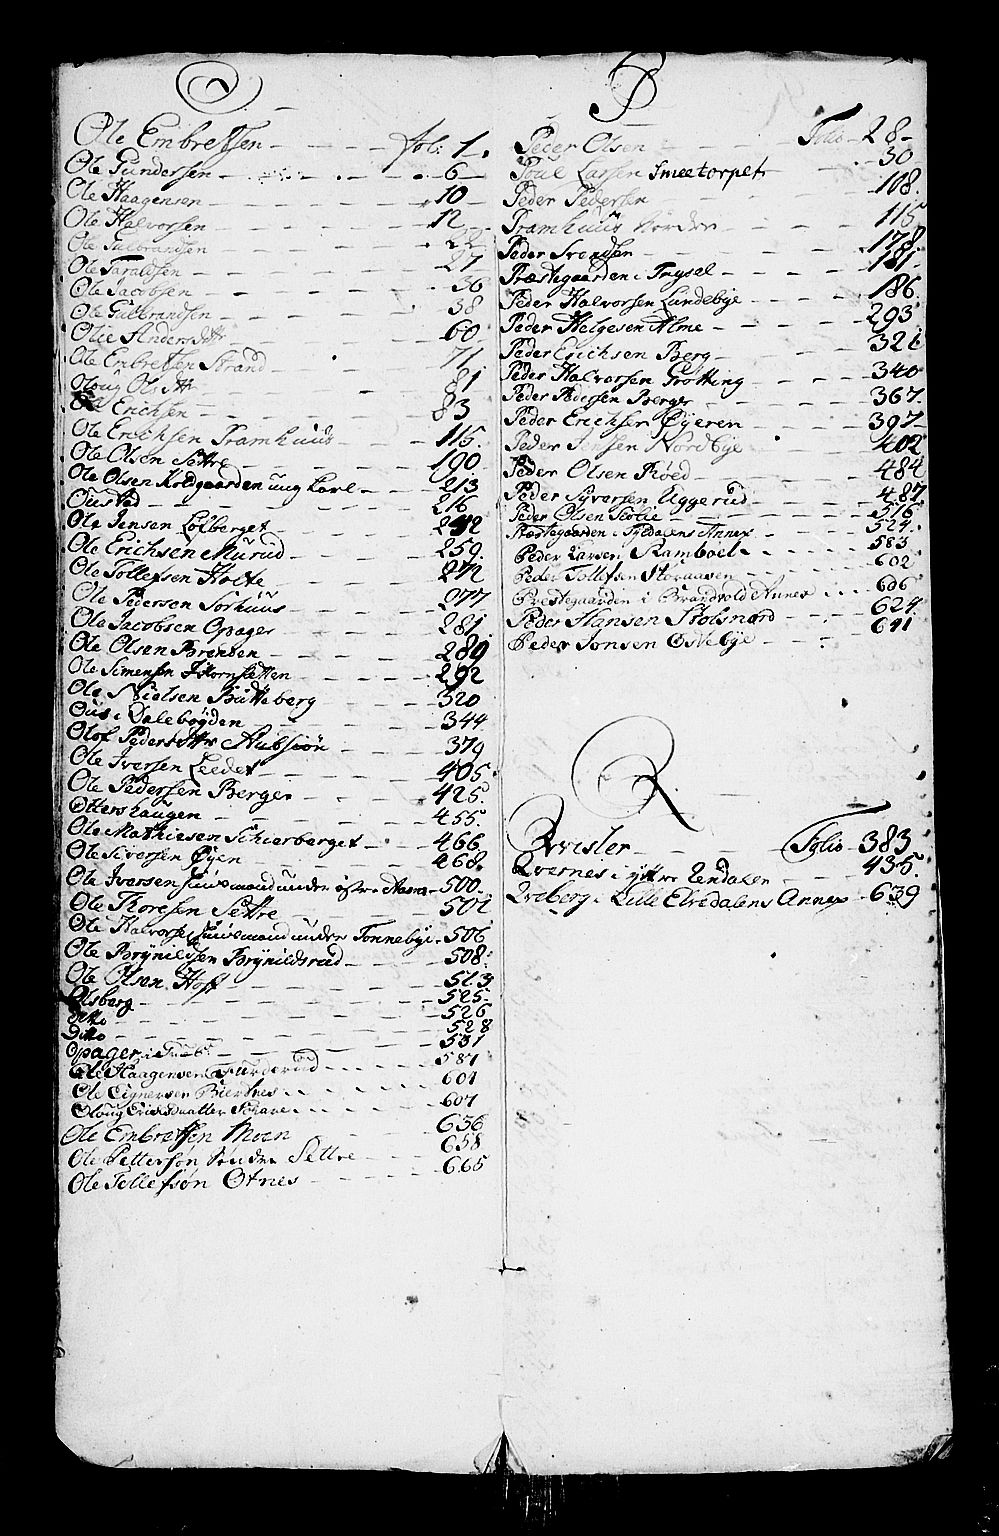 O
Ole Embretsen fol: 1.
Ole Gundersen 6
Ole Haagensen 10
Ole Halvorsen 12
Ole Gulbrandsen 22
Ole Taraldsen 27
Ole Jacobsen 36
Ole Gulbrandsen 38
Olie Andersdttr 60
Ole Embretsen Strand 71
Oloug Olsdttr 81
Erichsen 83
Ole Erichsen Framhuus 115.
Ole Olsen Settre 190
Ole Olsen Kildgaarden ung karl 213
Oustad 216
Ole Jensen Løfberget 242
Ole Erichsen Murud 259.
Ole Tollefsen Holte 272
Ole Pedersen Sorhuus 277
Ole Jacobsen Opager 281.
Ole Olsen Brenden 289
Ole Simensen Hornsletten 292
Ole Nielsen Bitteberg 320
Ous i Dalebøyden 344
Olof Pedersdttr Aubsiøn 379
Ole Iversen Leedet 405.
Ole Pedersen Berger 425.
Ottershaugen 455.
Ole Mathiesen Schierberget 466
Ole Siversen Øyen 468.
Ole Iversen huusmand under østre 500.
Ole Thoresen Settre 502
Ole Halvorsen huusmand under Tonnebye 506
Ole Brynildsen Brynildsrud 508.
Ole Olsen Hoff 513
Olsberg 525.
Ditto 526
Ditto 528
Opager i 531
Ole Haagensen 587
Ole Eignersen Biertnes 601
Oloug Ericksdaatter 607
Ole Embretsen Moen 636
Ole Pettersøn Sønder Settre 658
Ole Tollefsøn Otnes 665
P
Peder Olsen Folio 28
Poul Larsen Smeetorpet 30
Peder Pedersen 108.
Framhuus Nordre 115
Peder Svendsen 178
Præstegaarden i Trysel 181.
Peder Halvorsen Lundebye 186
Peder Helgesen Alme 293
Peder Erichsen Berg 321
Peder Halvorsen Grøtting 340
Peder Pedersen Berger 367.
Peder Erichsen Øyeren 397
Peder Jensen Nordbye 402
Peder Olsen Røed 484
Peder Syversen Uggerud 487.
Peder Olsen 516
Præstegaarden i Tyldalens Annex 524.
Peder Larsen Ramboel 583
Peder Tollefsen Storaasen 602
Prestegaarden i Brandvold Annex 606
Peder Hansen Stolsnord 624.
Peder Jonsen Østebye 641
R
Qvisler Folio 383
Qvernes i yttre Rendalen 435.
Qveberg i Lille Elvedalens Annex 639